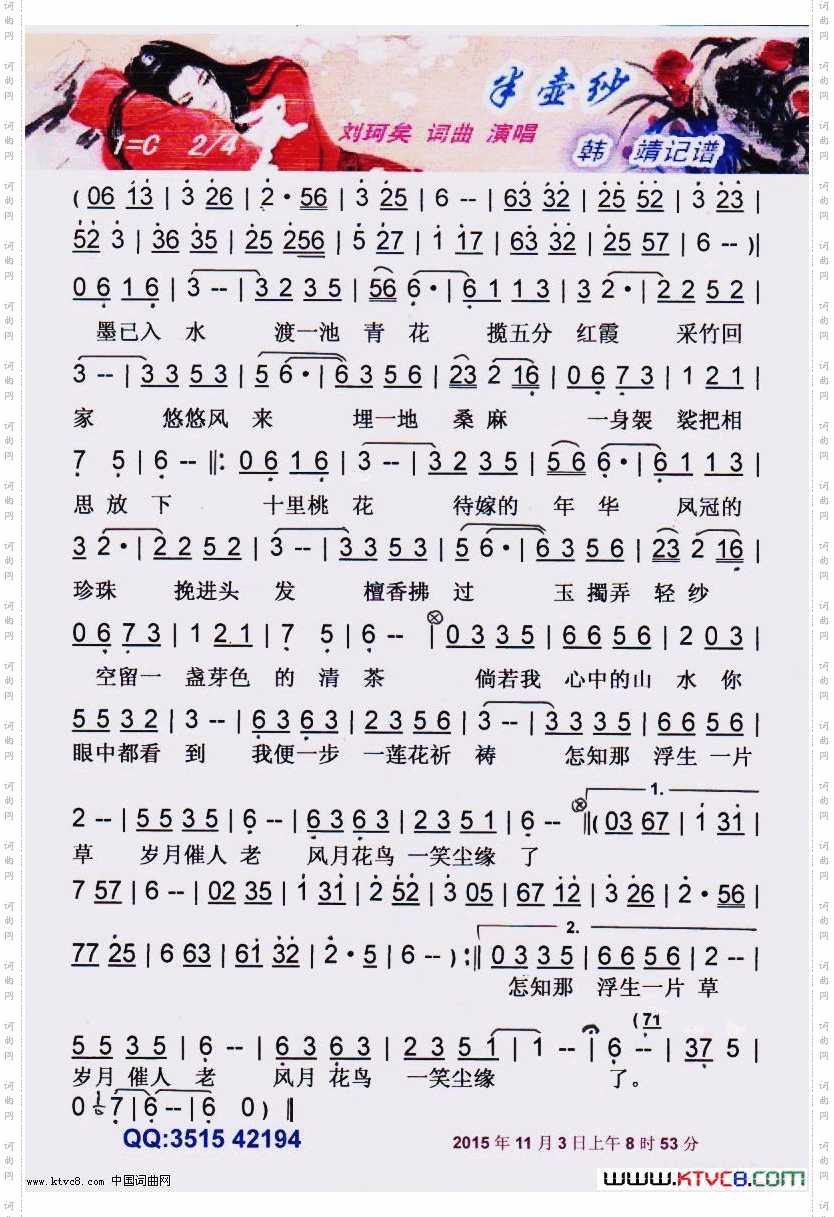 半壶纱
1=C 2/4
刘珂矣 词曲 演唱
韩 靖记谱
(06 13 | 3 26 | 2·56 | 3 25 | 6 -- | 63 32 | 25 52 | 3 23 |
52 3 | 36 35 | 25 256 | 5 27 | 1 17 | 63 32 | 25 57 | 6 -- )|
0 6 1 6 | 3 -- | 3 2 3 5 | 56 6· | 6 1 1 3 | 3 2· | 2 2 5 2 |
墨已入 水 渡一池 青 花 揽五分 红霞 采竹回
3 -- | 3 3 5 3 | 5 6· | 6 3 5 6 | 23 2 16 | 0 6 7 3 | 1 2 1 |
家 悠悠风 来 埋一地 桑 麻 一身袈 裟把相
7 5 | 6 -- ‖: 0 6 1 6 | 3 -- | 3 2 3 5 | 56 6· | 6 1 1 3 |
思 放 下 十里桃 花 待嫁的 年 华 凤冠的
3 2· | 2 2 5 2 | 3 -- | 3 3 5 3 | 5 6· | 6 3 5 6 | 23 2 16 |
珍珠 挽进头 发 檀香拂 过 玉 擱弄 轻 纱
0 6 7 3 | 1 2 1 | 7 5 | 6 -- | 0 3 3 5 | 6 6 5 6 | 2 0 3 |
空留一 盏芽色 的 清 茶 倘若我 心中的山 水 你
5 5 3 2 | 3 -- | 6 3 6 3 | 2 3 5 6 | 3 -- | 3 3 3 5 | 6 6 5 6 |
眼中都看 到 我便一步 一莲花祈 祷 怎知那 浮生 一片
1.
2 -- | 5 5 3 5 | 6 -- | 6 3 6 3 | 2 3 5 1 | 6 -- ‖( 03 67 | 1 31 |
草 岁月催人 老 风月花鸟 一笑尘缘 了
7 57 | 6 -- | 02 35 | 1 31 | 2 52 | 3 05 | 67 12 | 3 26 | 2·56 |
2.
77 25 | 6 63 | 61 32 | 2·5 | 6 -- ) :‖ 0 3 3 5 | 6 6 5 6 | 2 -- |
怎知那 浮生一片 草
(71
5 5 3 5 | 6 -- | 6 3 6 3 | 2 3 5 1 | 1 -- | 6 -- | 37 5 |
岁月 催人 老 风月 花鸟 一笑尘缘 了。
0 1/6 7 | 6 -- | 6 0 ) ‖
QQ:3515 42194
2015 年 11 月 3 日上午 8 时 53 分
www.ktvc8.com 中国词曲网
www.KTVC8.com